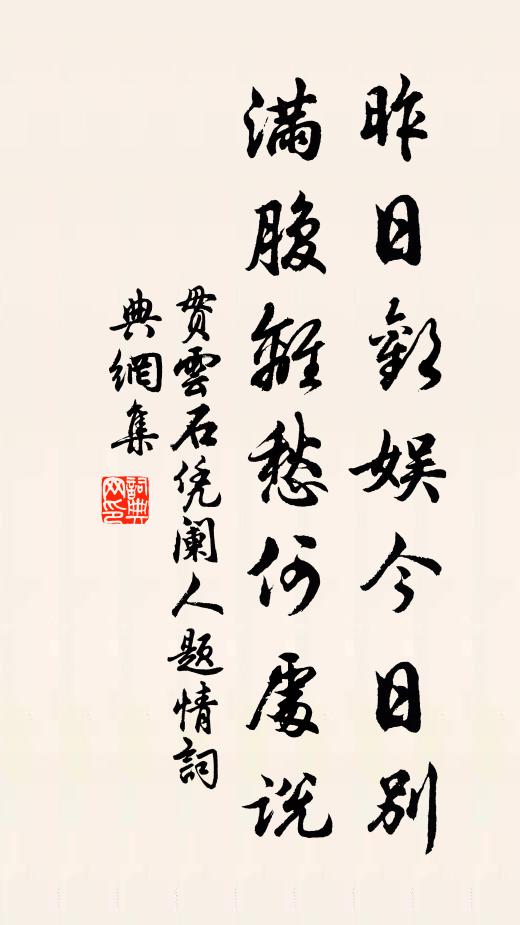 昨日歡娱今日別
滿腹離愁何處説
貫雲石凭阑人題情詞
典網集
詞典
网印